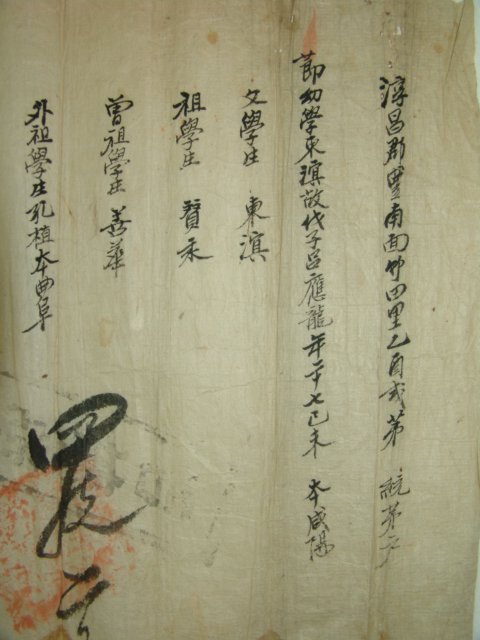 淳昌郡豊南面竹四里乙酉式第 統第 戶
節幼學東 故代子呂應龍年二十七己未 本咸陽
父學生 東
祖學生 永
曾祖學生 善華
外祖學生孔植本曲阜